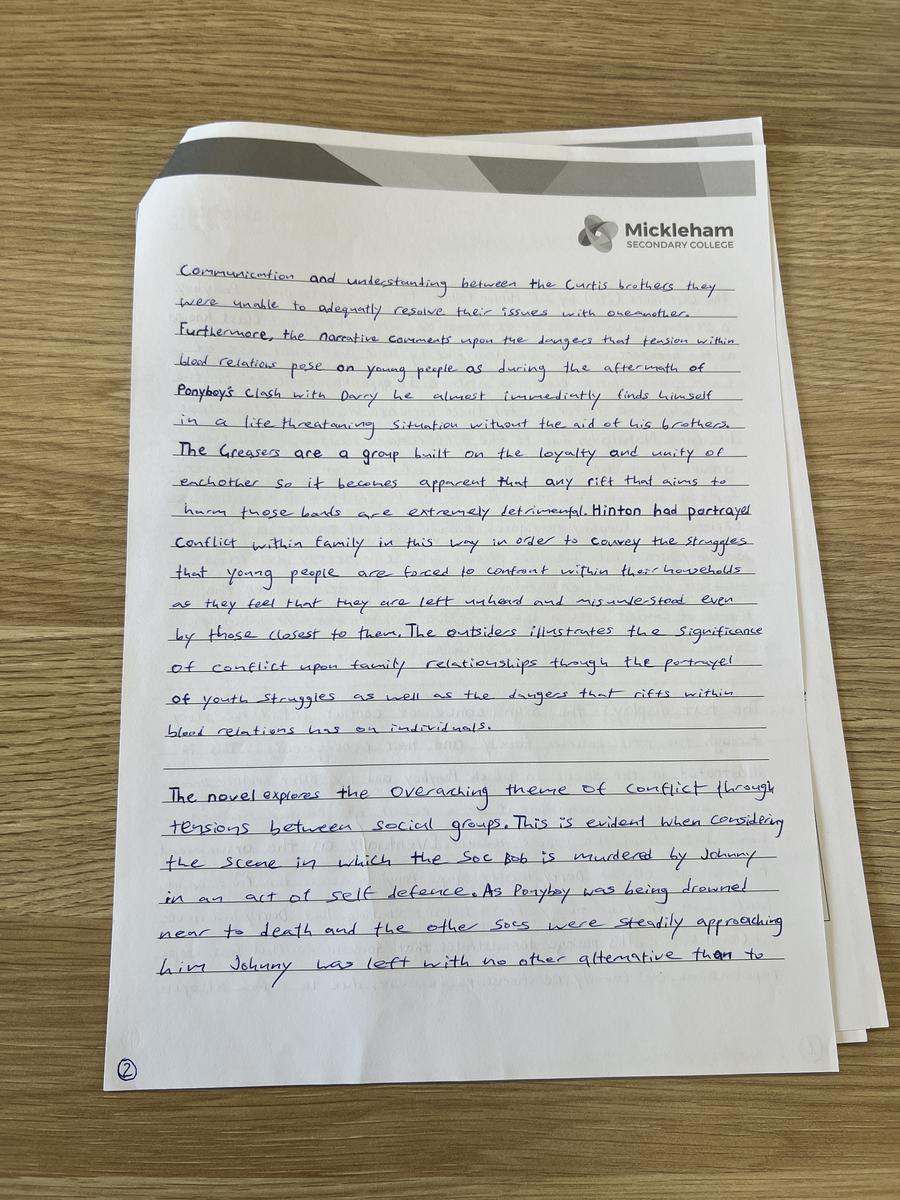 Mickleham
SECONDARY COLLEGE
Communication and understanding between the Curtis brothers they
were unable to adequatly resolve their issues with oneanother.
Furthermore, the narrative comments upon the dangers that tension within
blood relations pose on young people as during the aftermath of
Ponyboy's Clash with Darry he almost immediatly finds himself
in a life threataning situation without the aid of his brothers.
The Greasers are a group built on the loyalty and unity of
eachother so it becomes apparent that any rift that aims to
harm those bonds are extremely detrimental. Hinton had portrayed
conflict within family in this way in order to convey the struggles
that young people are forced to confront within their households
as they feel that they are left unheard and misunderstood even
by those closest to them. The outsiders illustrates the significance
of conflict upon family relationships though the portrayel
of youth struggles as well as the dangers that rifts within
blood relations has on individuals.
The novel explores the overarching theme of conflict through
tensions between social groups. This is evident when considering
the scene in which the Soc Bob is murdered by Johnny
in an act of self defence. As Ponyboy was being drowned
near to death and the other Socs were steadily approaching
him Johnny was left with no other alternative than to
2